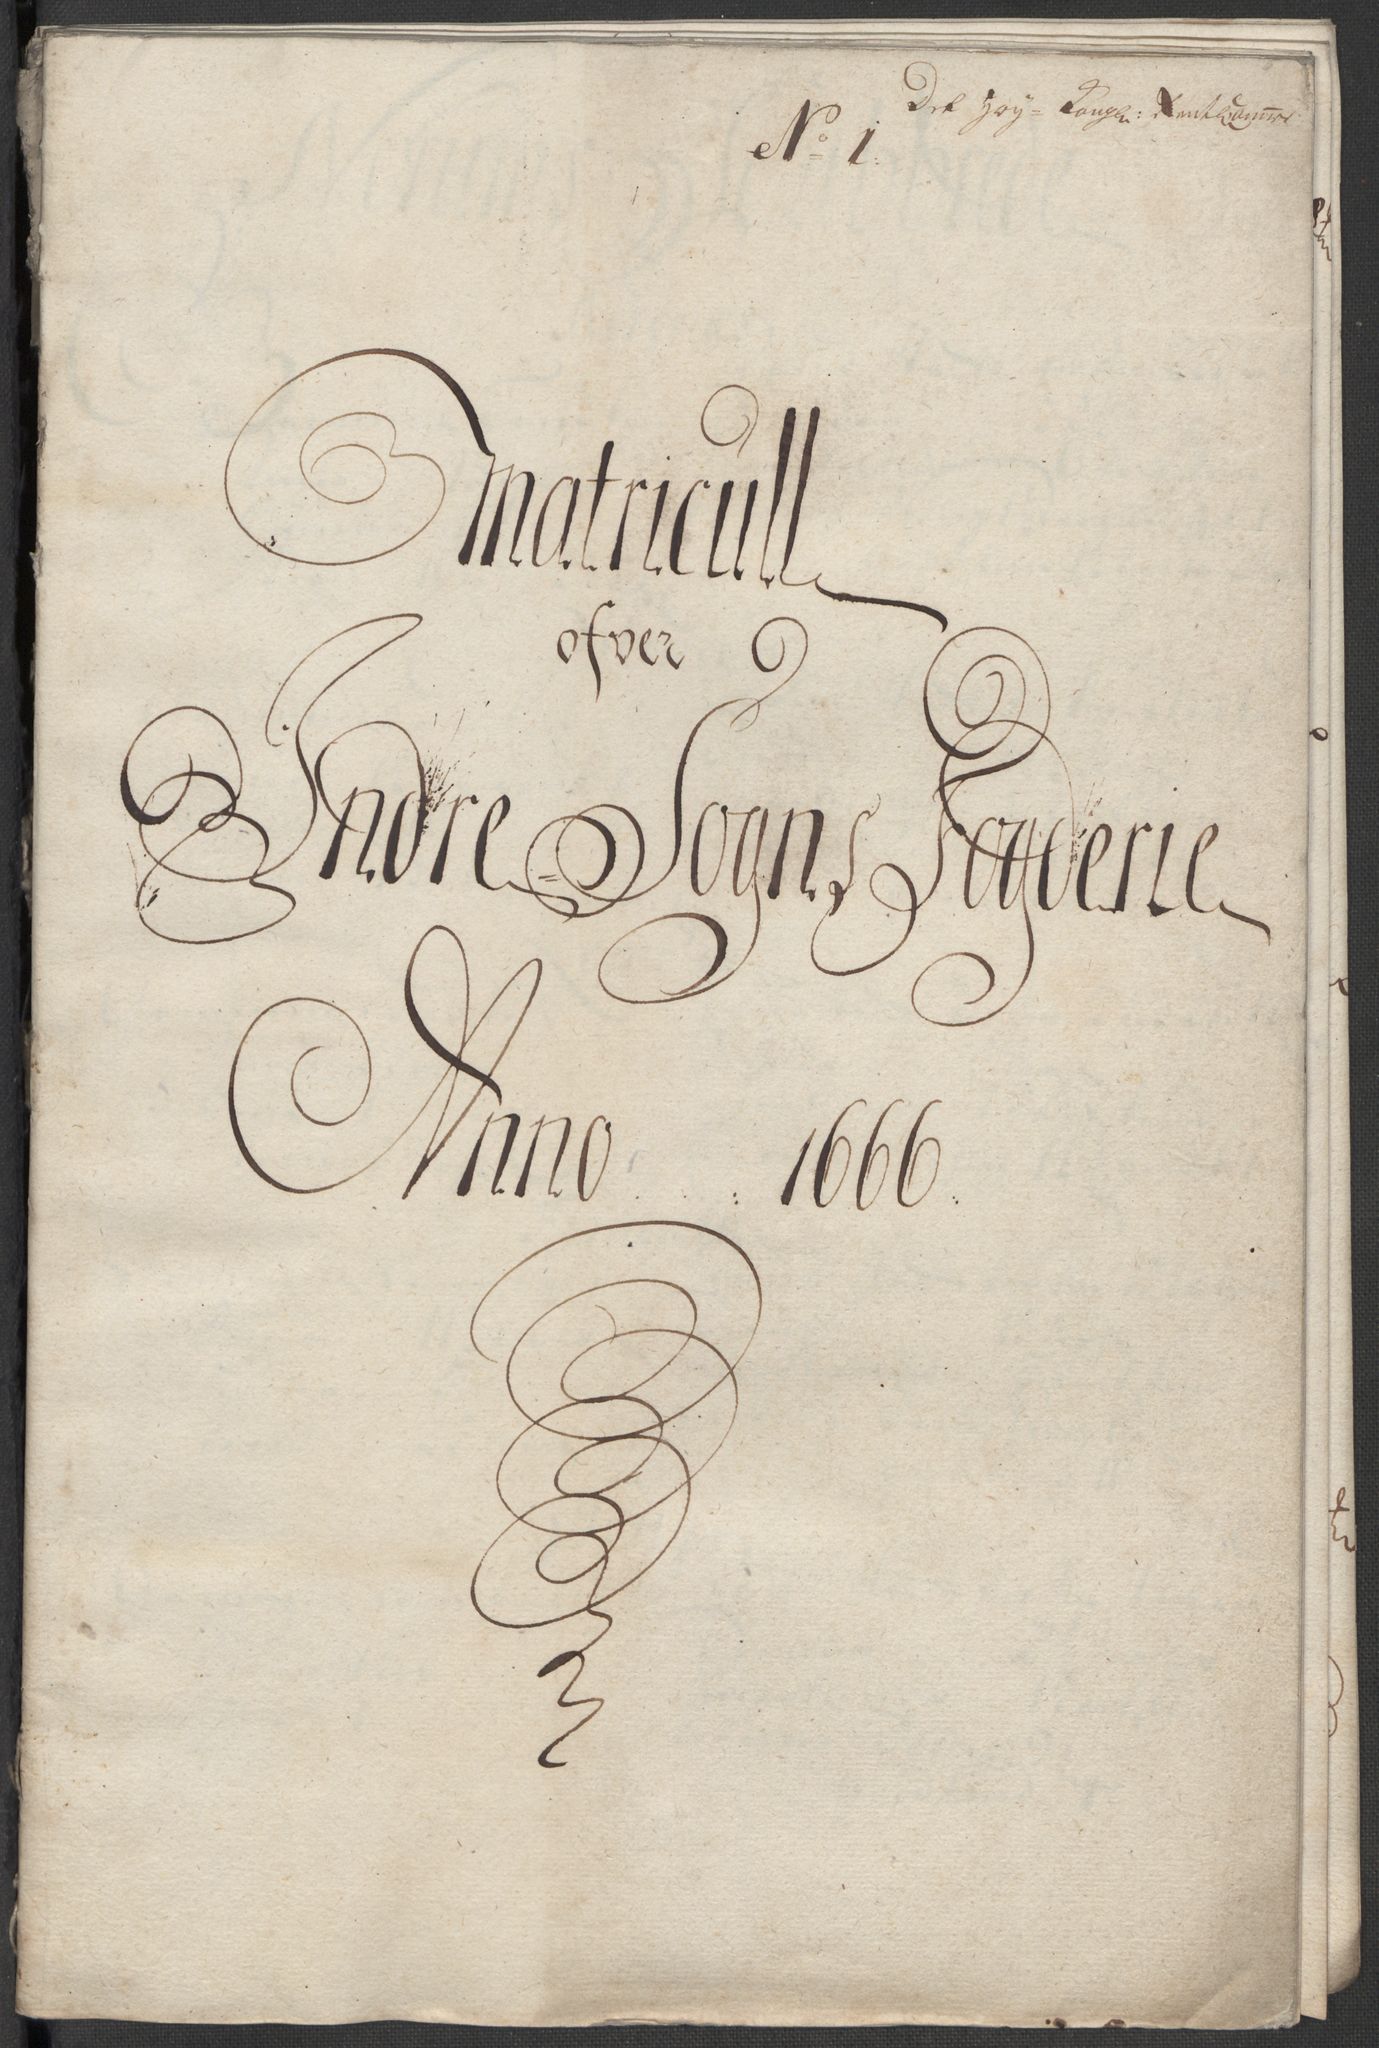 Det Høy= Kongl: Rentkammer
No 1.
Matricull
ofver
Indre Sogns Fogderie
Anno 1666.